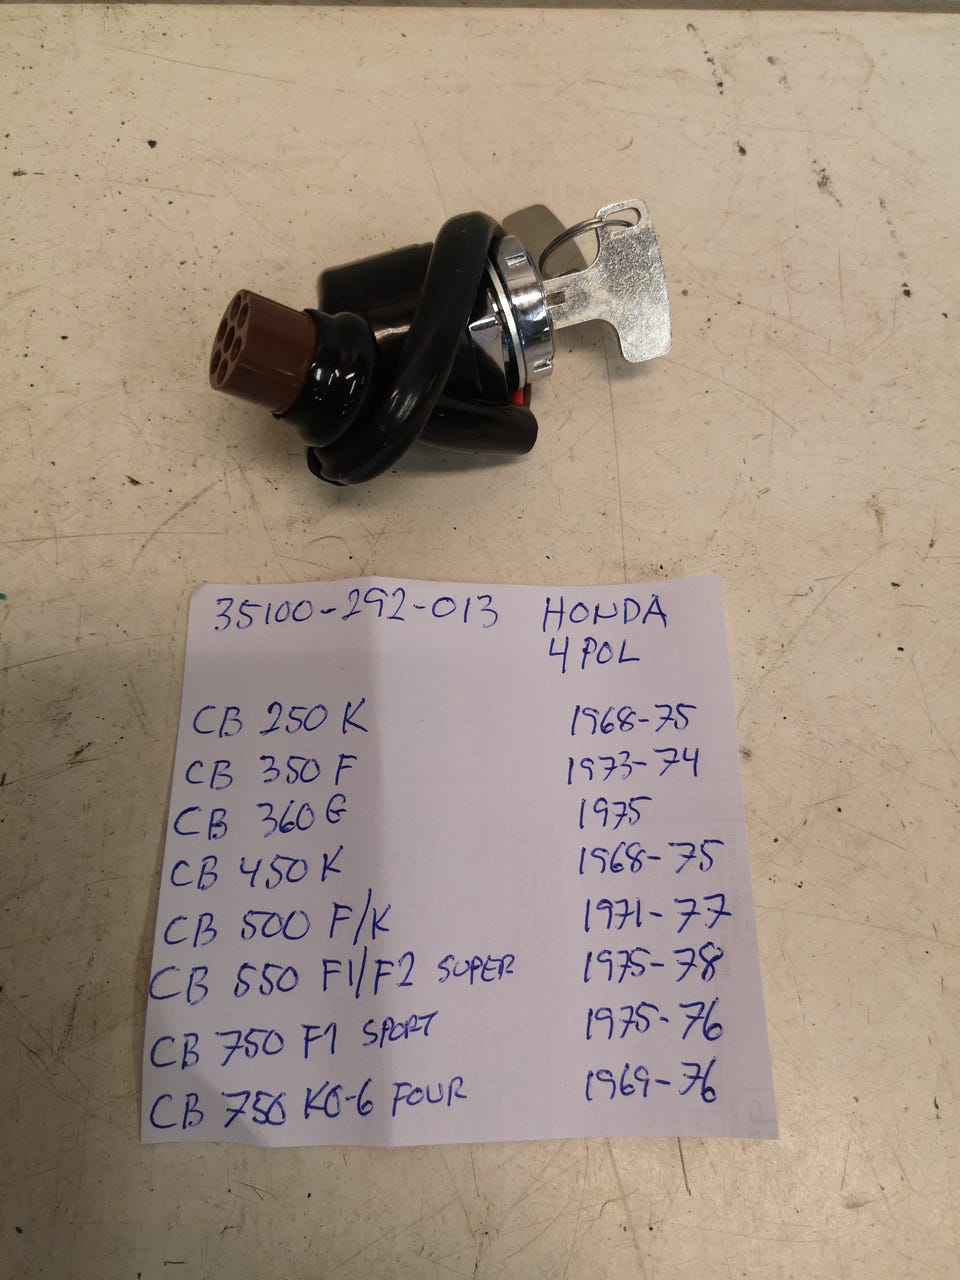 35100-292-013 HONDA
4 POL
CB 250 K 1968-75
CB 350 F 1973-74
CB 360 G 1975
CB 450 K 1968-75
CB 500 F/K 1971-77
CB 550 F1/F2 SUPER 1975-78
CB 750 F1 SPORT 1975-76
CB 750 K0-6 FOUR 1969-76